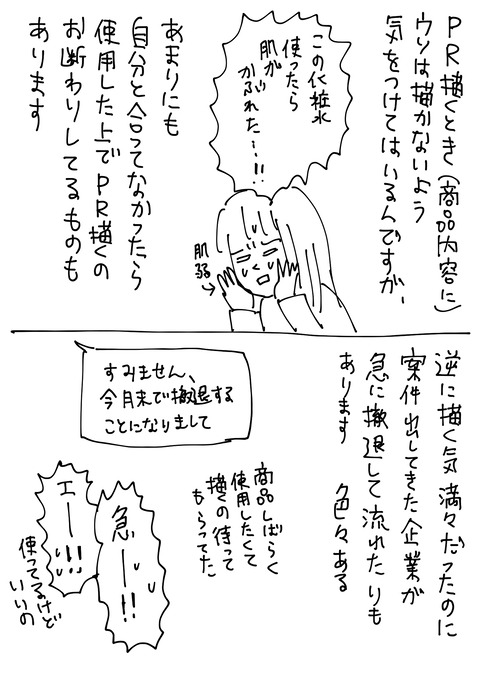 PR描くとき(商品内容に)
ウソは描かないよう
気をつけてはいるんですが、
この化粧水
使ったら
肌が
かぶれた…!!
肌弱
あまりにも
自分と合ってなかったら
使用した上でPR描くの
お断わりしてるものも
あります
逆に描く気満々だったのに
案件出してきた企業が
急に撤退して流れたりも
あります
色々ある
すみません、
今月末で撤退する
ことになりまして
商品しばらく
使用したくて
描くの待って
もらってた
急ー!!
エー!!!
使ってるけど
いいの